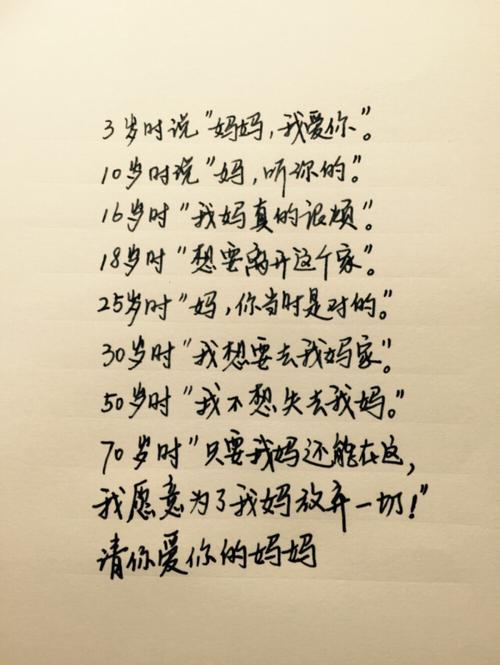 3岁时说"妈妈,我爱你"。
10岁时说"妈,听你的"。
16岁时"我妈真的很烦"。
18岁时"想要离开这个家"。
25岁时"妈,你当时是对的。"
30岁时"我想要去我妈家"。
50岁时"我不想失去我妈。"
70岁时"只要我妈还能在这,
我愿意为了我妈放弃一切!"
请你爱你的妈妈